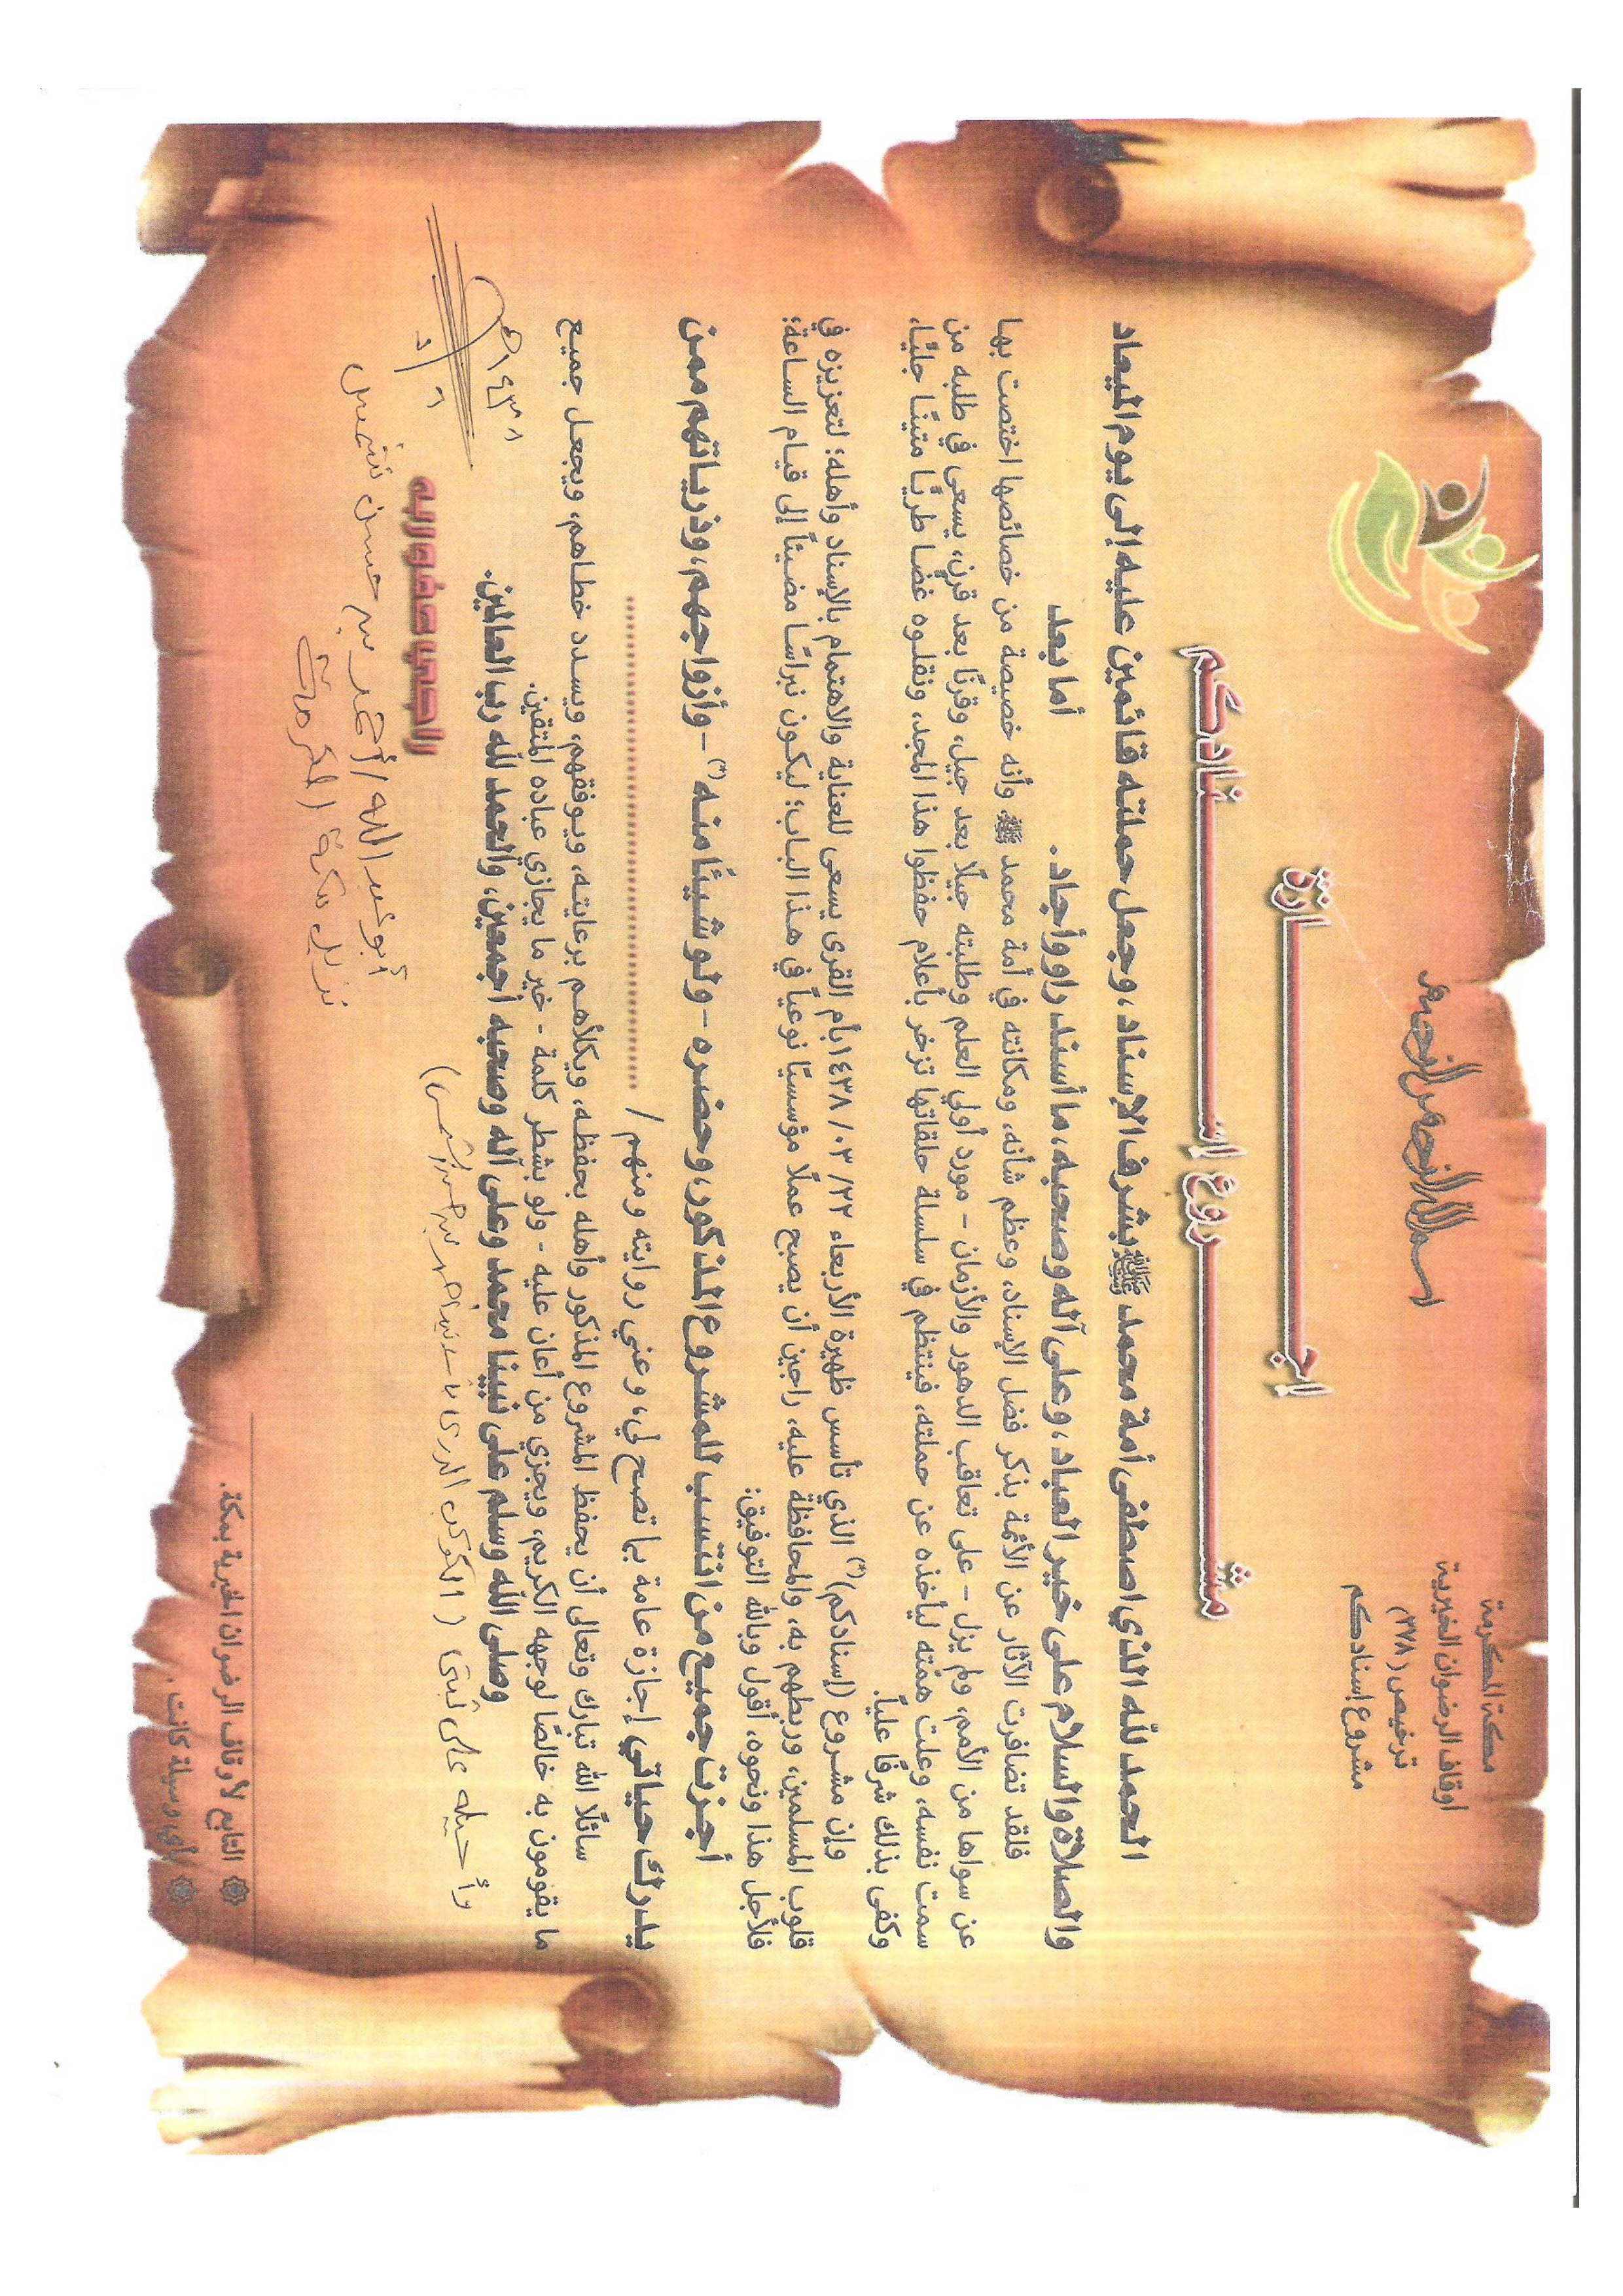 مكة المكرمة
أوقاف الرضوان الخيرية
ترخيص (٣٧٨)
مشروع إسنادكم
بسم الله الرحمن الرحيم
إجــــازة
مشـــروع إســـنادكم
الحمد لله الذي اصطفى أمة محمد ﷺ بشرف الإسناد، وجعل حملته قائمين عليه إلى يوم الميعاد
والصلاة والسلام على خير العباد، وعلى آله وصحبه، ما أسند راو وأجاد.
أما بعد
فلقد تضافرت الآثار عن الأئمة بذكر فضل الإسناد، وعظم شأنه، ومكانته في أمة محمد ﷺ وأنه خصيصة من خصائصها اختصت بها
عن سواها من الأمم، ولم يزل - على تعاقب الدهور والأزمان - مورد أولي العلم وطلبته جيلًا بعد جيل، وقرنًا بعد قرن، يسعى في طلبه من
سمت نفسه، وعلت همّته ليأخذه عن حملته، فينتظم في سلسلة حلقاتها تزخر بأعلام حفظوا هذا المجد، ونقلوه غضا طريًا متينًا جليًا،
وكفى بذلك شرفًا عليا.
وإن مشروع (إسنادكم)(*) الذي تأسس ظهيرة الأربعاء ٢٢/ ٠٣/ ١٤٣٨ بأم القرى يسعى للعناية والاهتمام بالإسناد وأهله؛ لتعزيزه في
قلوب المسلمين، وربطهم به، والمحافظة عليه، راجين أن يصبح عملًا مؤسسيًا نوعياً في هذا الباب؛ ليكون نبراسًا مضيئاً إلى قيام الساعة؛
فلأجل هذا ونحوه، أقول وبالله التوفيق:
أجزت جميع من انتسب للمشروع المذكور، وحضره - ولو شيئًا منه(*) - وأزواجهم، وذرياتهم ممن
يدرك حياتي إجازة عامة بما تصح لي، وعني روايته ومنهم / ..............................
سائلًا الله تبارك وتعالى أن يحفظ المشروع المذكور وأهله بحفظه، ويكلأهم برعايته، ويوفقهم، ويسدد خطاهم، ويجعل جميع
ما يقومون به خالصًا لوجهه الكريم، ويجزي من أعان عليه - ولو بشطر كلمة - خير ما يجازي عباده المتقين.
وصلى الله وسلم على نبينا محمد وعلى آله وصحبه أجمعين، والحمد لله رب العالمين.
وأحيله على ثبتي (الكوكب الدري
١٤٣٨ هـ
الراجي عفو ربه
أبو عبد الله / أحمد بن حسن
نزيل مكة المكرمة
التابع لأوقاف الرضوان الخيرية بمكة.
بأي وسيلة كانت.